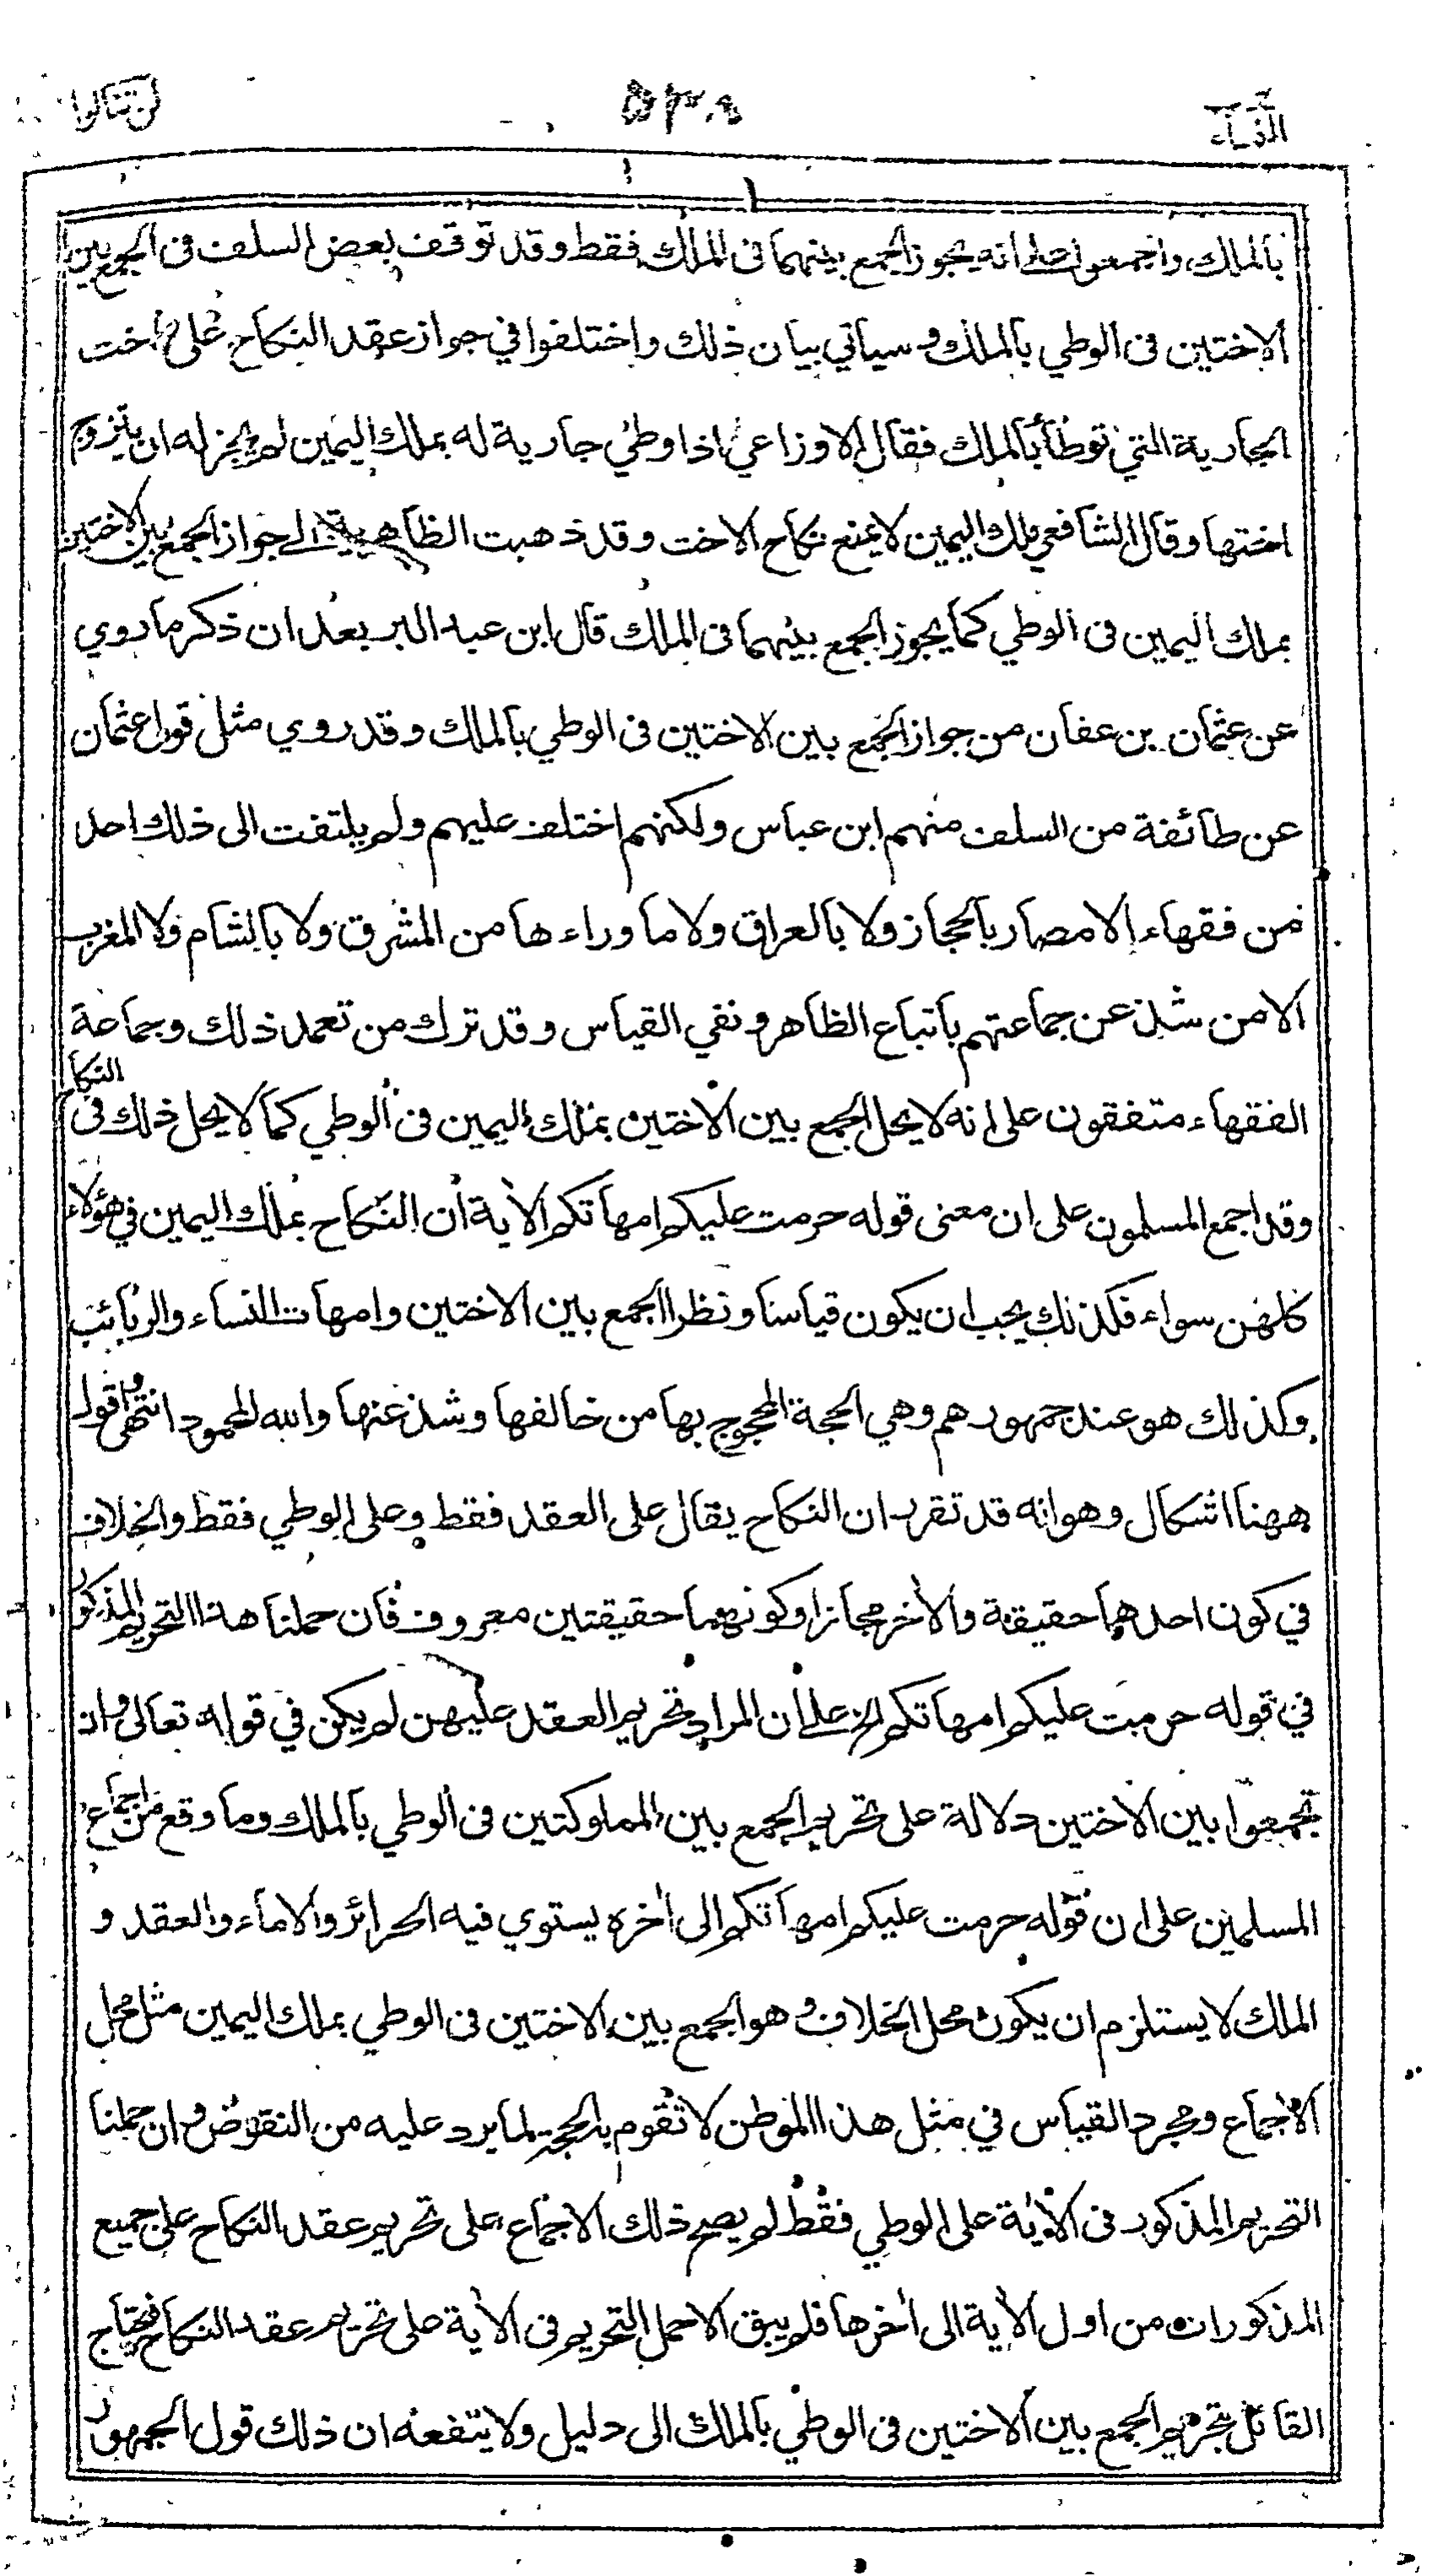 النساء
٥٣٨
لن تنالوا
بالملك واجمعوا على انه يجوز الجمع بينهما فى الملك فقط وقد توقف بعض السلف فى الجمع بين
الاختين فى الوطي بالملك وسياتي بيان ذلك واختلفوا في جواز عقد النكاح على اخت
الجارية التي توطأ بالملك فقال الاوزاعي اذا وطي جارية له بملك اليمين لم يجز له ان يتزوج
اختها وقال الشافعي ملك اليمين لا يمنع نكاح الاخت وقد ذهبت الظاهرية الى جواز الجمع بين الاختين
بملك اليمين فى الوطي كما يجوز الجمع بينهما فى الملك قال ابن عبد البر بعد ان ذكر ما روي
عن عثمان بن عفان من جواز الجمع بين الاختين فى الوطي بالملك وقد روي مثل قول عثمان
عن طائفة من السلف منهم ابن عباس ولكنهم اختلف عليهم ولم يلتفت الى ذلك احد
من فقهاء الامصار بالحجاز ولا بالعراق ولا ما وراءها من المشرق ولا بالشام ولا المغرب
الا من شذ عن جماعتهم باتباع الظاهر ونفي القياس وقد ترك من تعمد ذلك وجماعة
الفقهاء متفقون على انه لا يحل الجمع بين الاختين بملك اليمين فى الوطي كما لا يحل ذلك فى النكاح
وقد اجمع المسلمون على ان معنى قوله حرمت عليكم امهاتكم الأية أن النكاح بملك اليمين في هؤلاء
كلهن سواء فكذلك يجب ان يكون قياسا ونظرا الجمع بين الاختين وامهات النساء والربائب
وكذلك هو عند جمهورهم وهي الحجة المحجوج بها من خالفها وشذ عنها والله المحمود انتهى واقول
ههنا اشكال وهو انه قد تقرر ان النكاح يقال على العقد فقط وعلى الوطي فقط والخلاف
في كون احدهما حقيقة والأخر مجازا او كونهما حقيقتين معروف فان حملنا هذا التحريم المذكور
في قوله حرمت عليكم امهاتكم الخ على أن المراد تحريم العقد عليهن لم يكن في قوله تعالى وان
تجمعوا بين الاختين دلالة على تحريم الجمع بين المملوكتين فى الوطي بالملك وما وقع من اجماع
المسلمين على ان قوله حرمت عليكم امهاتكم الى أخره يستوي فيه الحرائر والاماء والعقد و
الملك لا يستلزم ان يكون محل الخلاف وهو الجمع بين الاختين فى الوطي بملك اليمين مثل محل
الاجماع ومجرد القياس في مثل هذا الموطن لا تقوم به الحجة لما يرد عليه من النقوض وان حملنا
التحريم المذكور فى الأية على الوطي فقط لم يصح ذلك الاجماع على تحريم عقد النكاح على جميع
المذكورات من اول الأية الى أخرها فلم يبق الا حمل التحريم فى الأية على تحريم عقد النكاح فيحتاج
القائل بتحريم الجمع بين الاختين فى الوطي بالملك الى دليل ولا ينفعه ان ذلك قول الجمهور